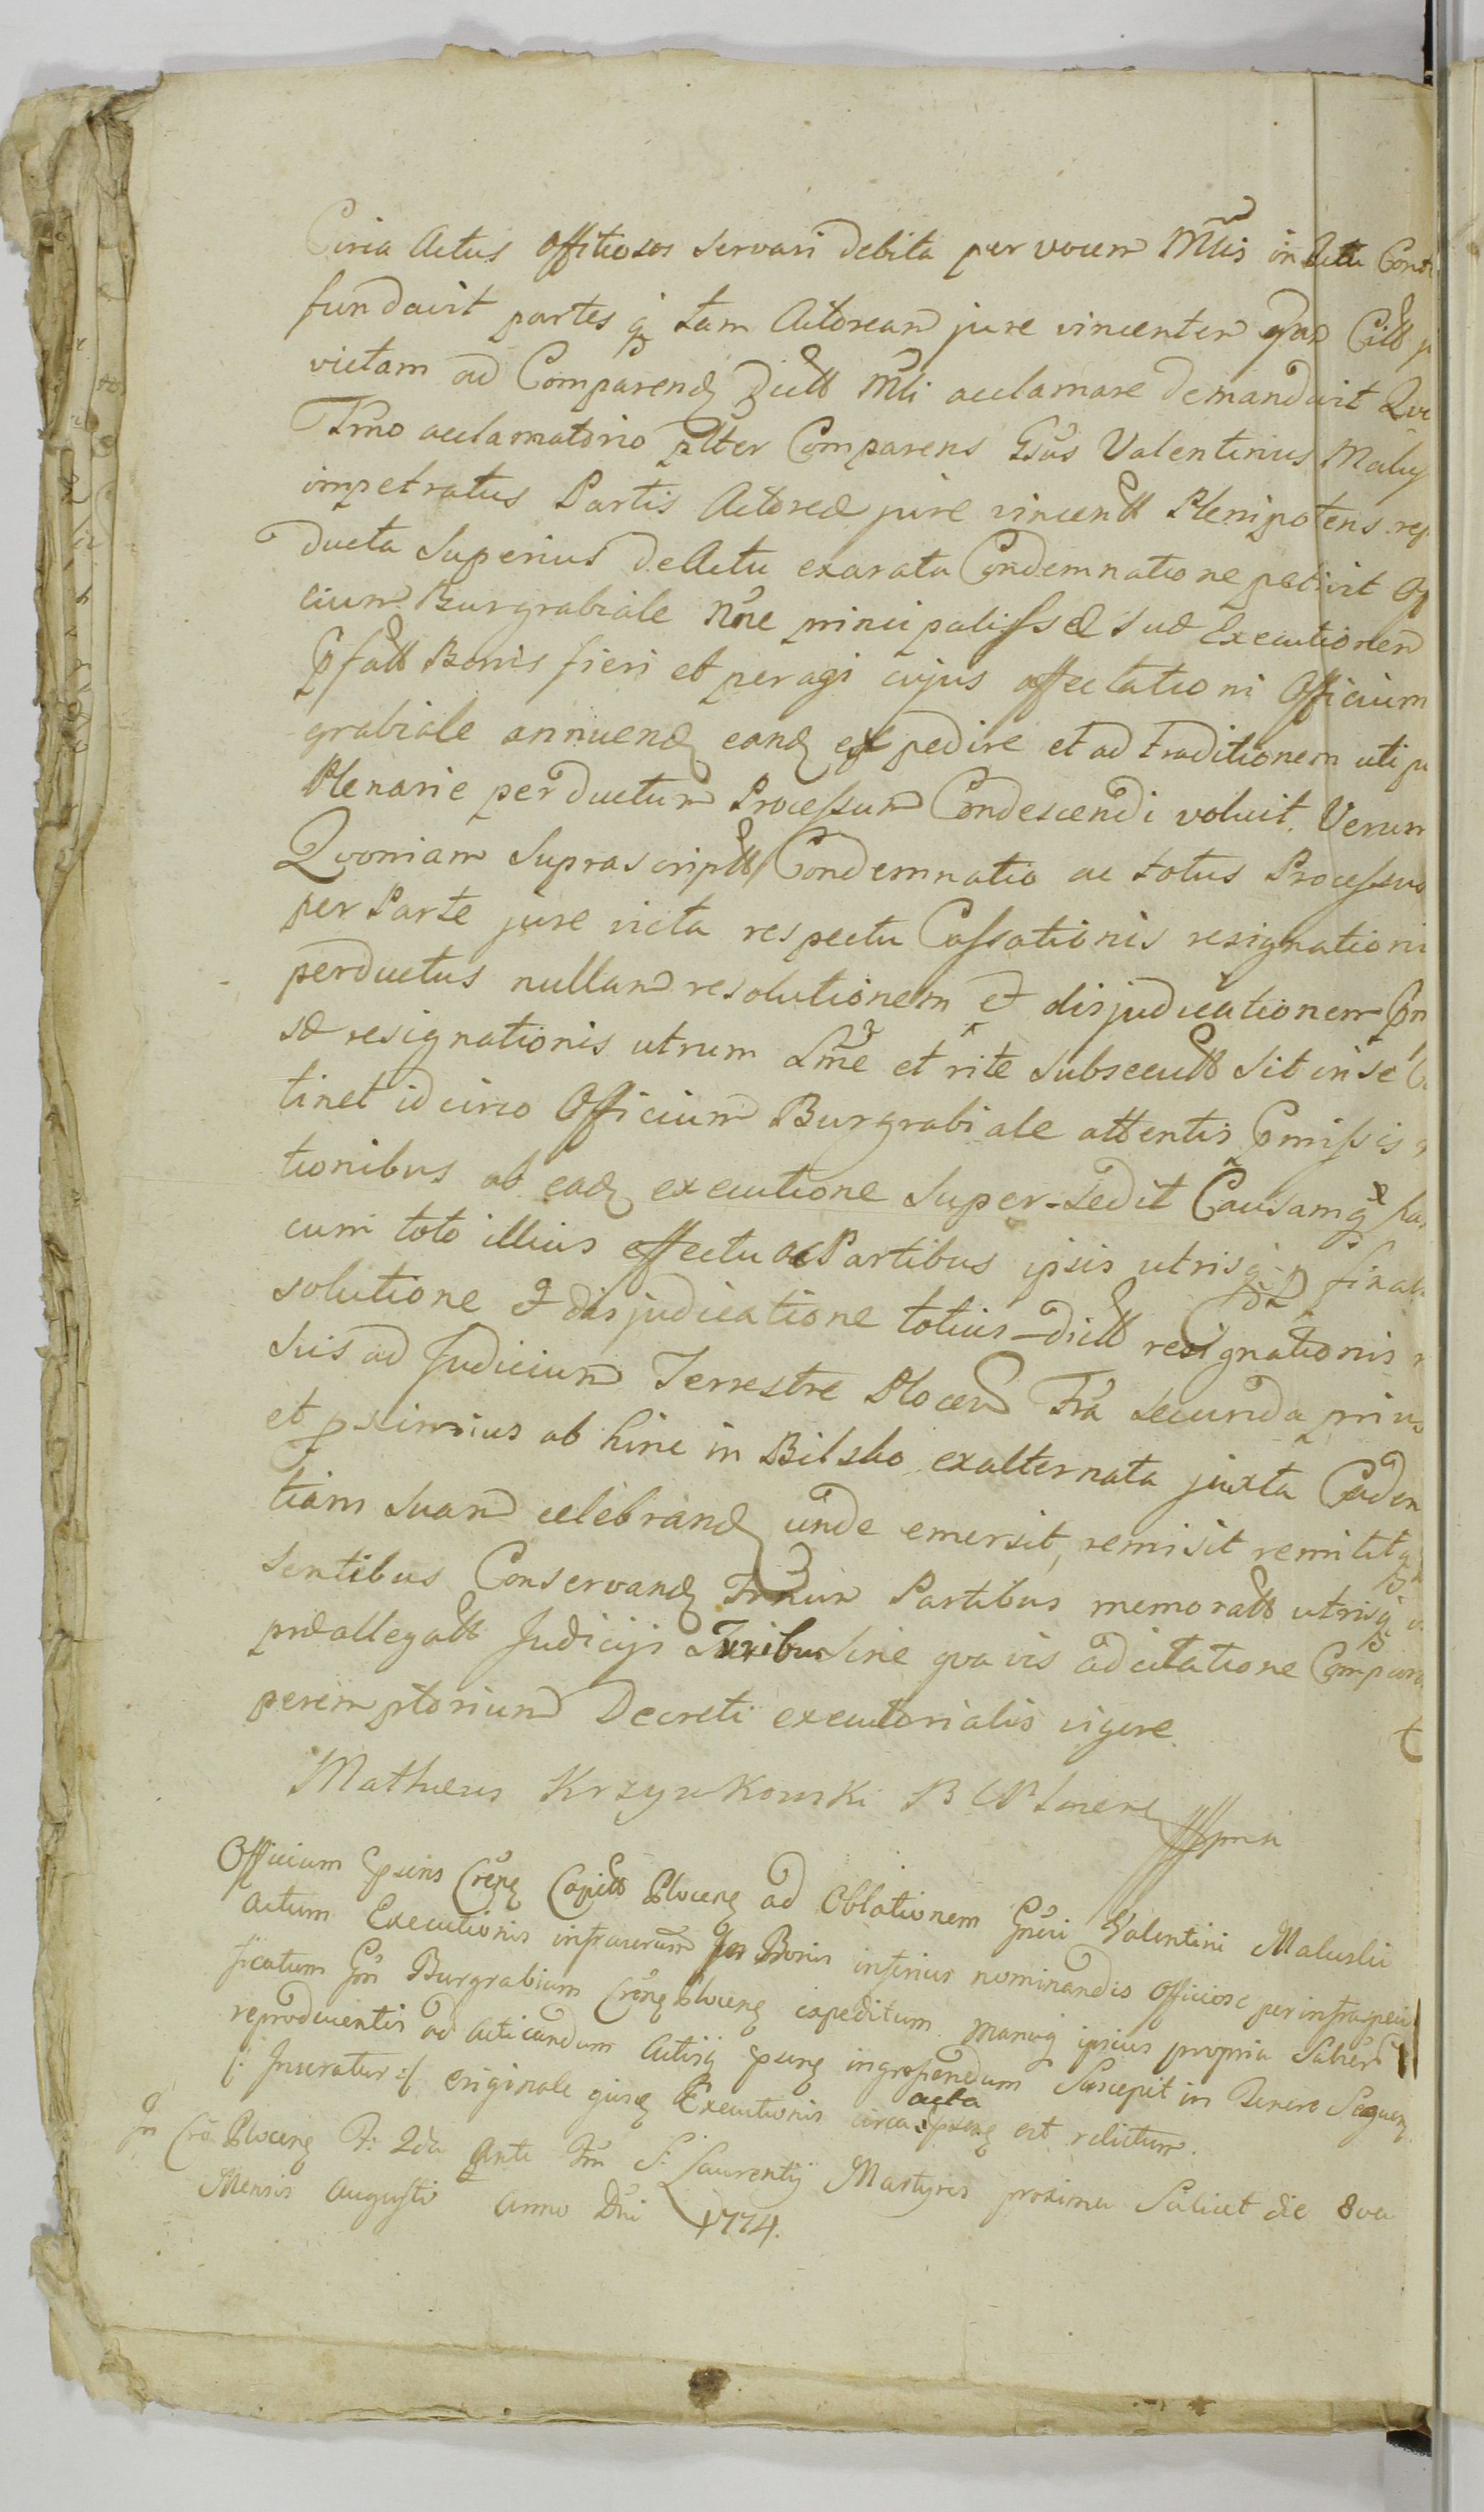 Circa Actus Offitiosos servari debita per vocem Mlis in Actu
fundavit partes q tam Actoream jure vincentem qua Citt
victam ad Comparend dictt Mli acclamare demandavit
Tmo acclamatorio plter Comparens Gsus Valentinus
impetratus Partis Actoreæ jure vincentt Plenipotens
ducta Superius de Actu exarata Condemnatione petivit
cium Burgrabiale nne principalissæ suæ Executionem
Pfatt Bonis fieri et peragi cujus affectationi Officium
grabiale annuend eand expedire et ad traditionem uti
Plenarie perductum Processum Condescendi voluit. Verum
Quoniam Suprascriptt Condemnatio ac totus Processus
per Parte jure victa respectu Cassationis resignationi
perductus nullam resolutionem et disjudicationem
sæ resignationis utrum Lme et rite subsecutt sit in se
tinet idcirco Officium Burgrabiale attentis Pmissis
tionibus ab ead executione Super-sedit Causamq
cum toto illius effectu ac Partibus ipsis utrisq
solutione et disjudicatione totius dictt resignationis
suis ad Judicium Terrestre Plocen Fra secunda
et pximius ab hinc in Bilsko exalternata juxta Caden
tiam suam celebrand unde emersit, remisit remittit
sentibus Conservand Tnum Partibus memoratt utrisq
præallegatt Judicij Juribus sine quavis adcitatione
peremptorium Decreti executorialis vigore
Matheus Krzynkowski B C P
Officium Psens Crense Capitt Plocens ad Oblationem Gnsi Valentini Maluski
Actum Executionis infrascrum In Bonis inferius nominandis Officiose per infraspeci
ficatum Gm Burgrabium Crens Plocens expeditum Manuq ipsius propria
reproducentis ad Acticandum Actisq Psens ingrossandum Suscepit in Tenore Sequen
/: Inseratur :/ Originale ejusd Executionis circa acta Psens est relictum.
In Cro Plocens F: 2da Ante Fm S: Laurentij Martyris proxima Scilicet die 8va
Mensis Augusti Anno Dni 1774.